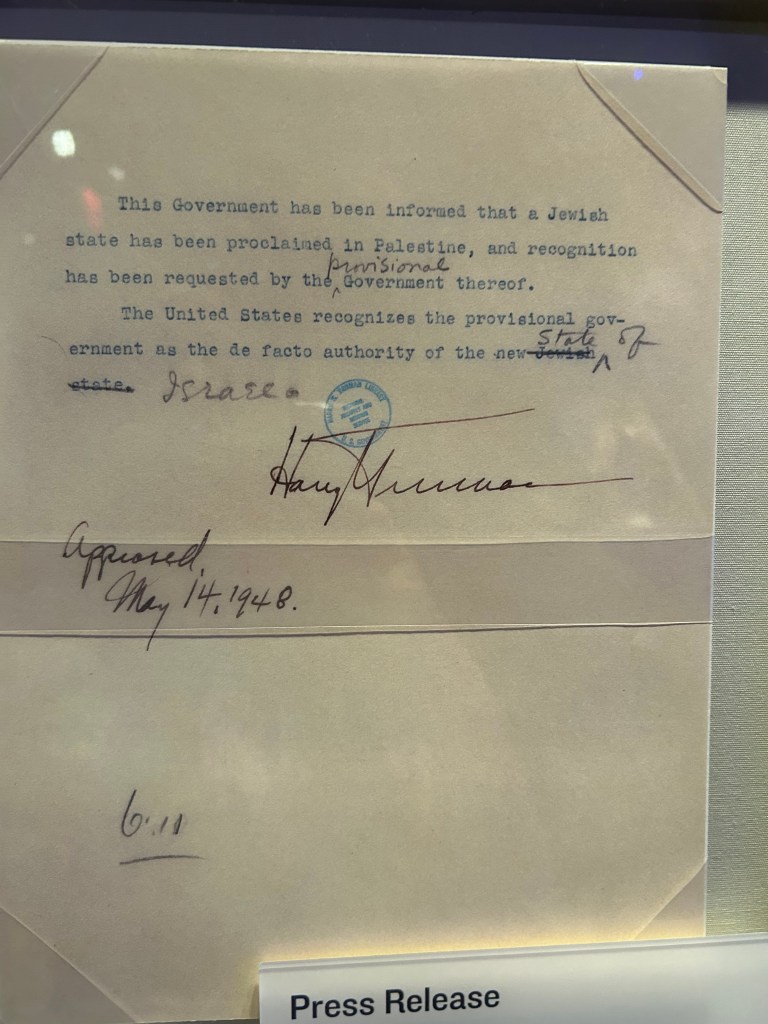 This Government has been informed that a Jewish
state has been proclaimed in Palestine, and recognition
provisional
has been requested by the ^ Government thereof.
The United States recognizes the provisional gov-
State of
ernment as the de facto authority of the new Jewish ^
state. Israel.
Harry Truman
Approved,
May 14, 1948.
6.11
Press Release